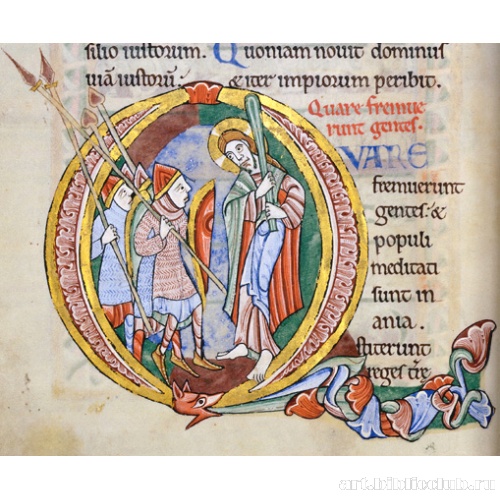 silio iustorum. Quoniam novit dominus
viā iustorū: & iter impiorum peribit.
Quare fremue
runt gentes.
QVARE
fremuerunt
gentes: &
populi
meditati
sunt in
ania.
stiterunt
reges tr̄e
art.biblioclub.ru